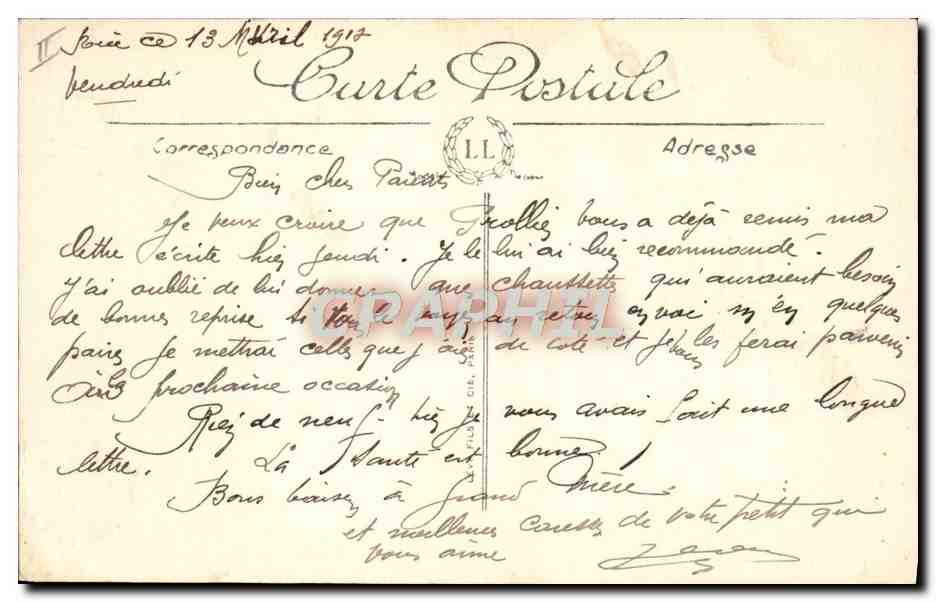 II
ce 13 Avril 1917
Vendredi
Carte Postale
Correspondance
LL
Adresse
Bien chers Parents
Je veux croire que Trollier vous a déjà remis ma
lettre écrite hier Jeudi. Je le lui ai bien recommandé.
J'ai oublié de lui donner que chaussettes qui auraient besoin
de bonnes reprise si vous le voyez au retour envoi m'en quelques
paires je mettrai celles que j'ai de coté et je vous les ferai parvenir
à la prochaine occasion
Rien de neuf. hier je vous avais fait une longue
lettre. La santé est bonne!
Bons baisers à grand Mère.
et meilleures caresses de votre petit qui
vous aime
LEVY FILS & CIE, PARIS
CPAPHIL